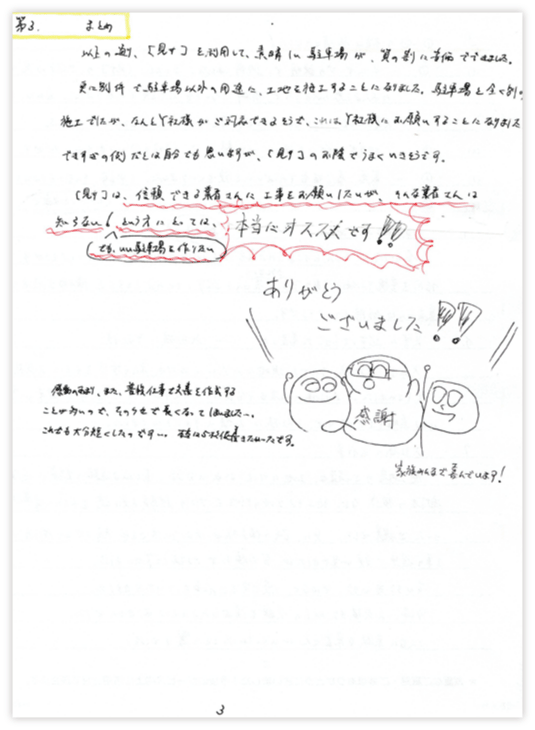 第3. まとめ
以上の通り、「見サ」を利用して、素晴しい駐車場が、質の割に安価でできました。
更に別件で駐車場以外の用途に、土地を施工することになりました。駐車場と全く別の
施工でしたが、なんとY社様がご対応できるそうで、これはY社様にお願いすることになりました
ですがこの例だとは自分でも思いますが、「見サ」のお陰でうまくいきそうです。
「見サ」は、信頼できる業者さんに工事をお願いしたいが、そんな業者さんは
知らない! という方にとっては、本当にオススメです!!
でも、いい駐車場を作りたい
ありがとう
ございました!!
感動の余り、また、普段仕事で文書を作成する
ことが多いので、そのクセで長くなってしまいました…。
これでも大分短くしたのです…。
感謝
家族みんなで喜んでいます!
3